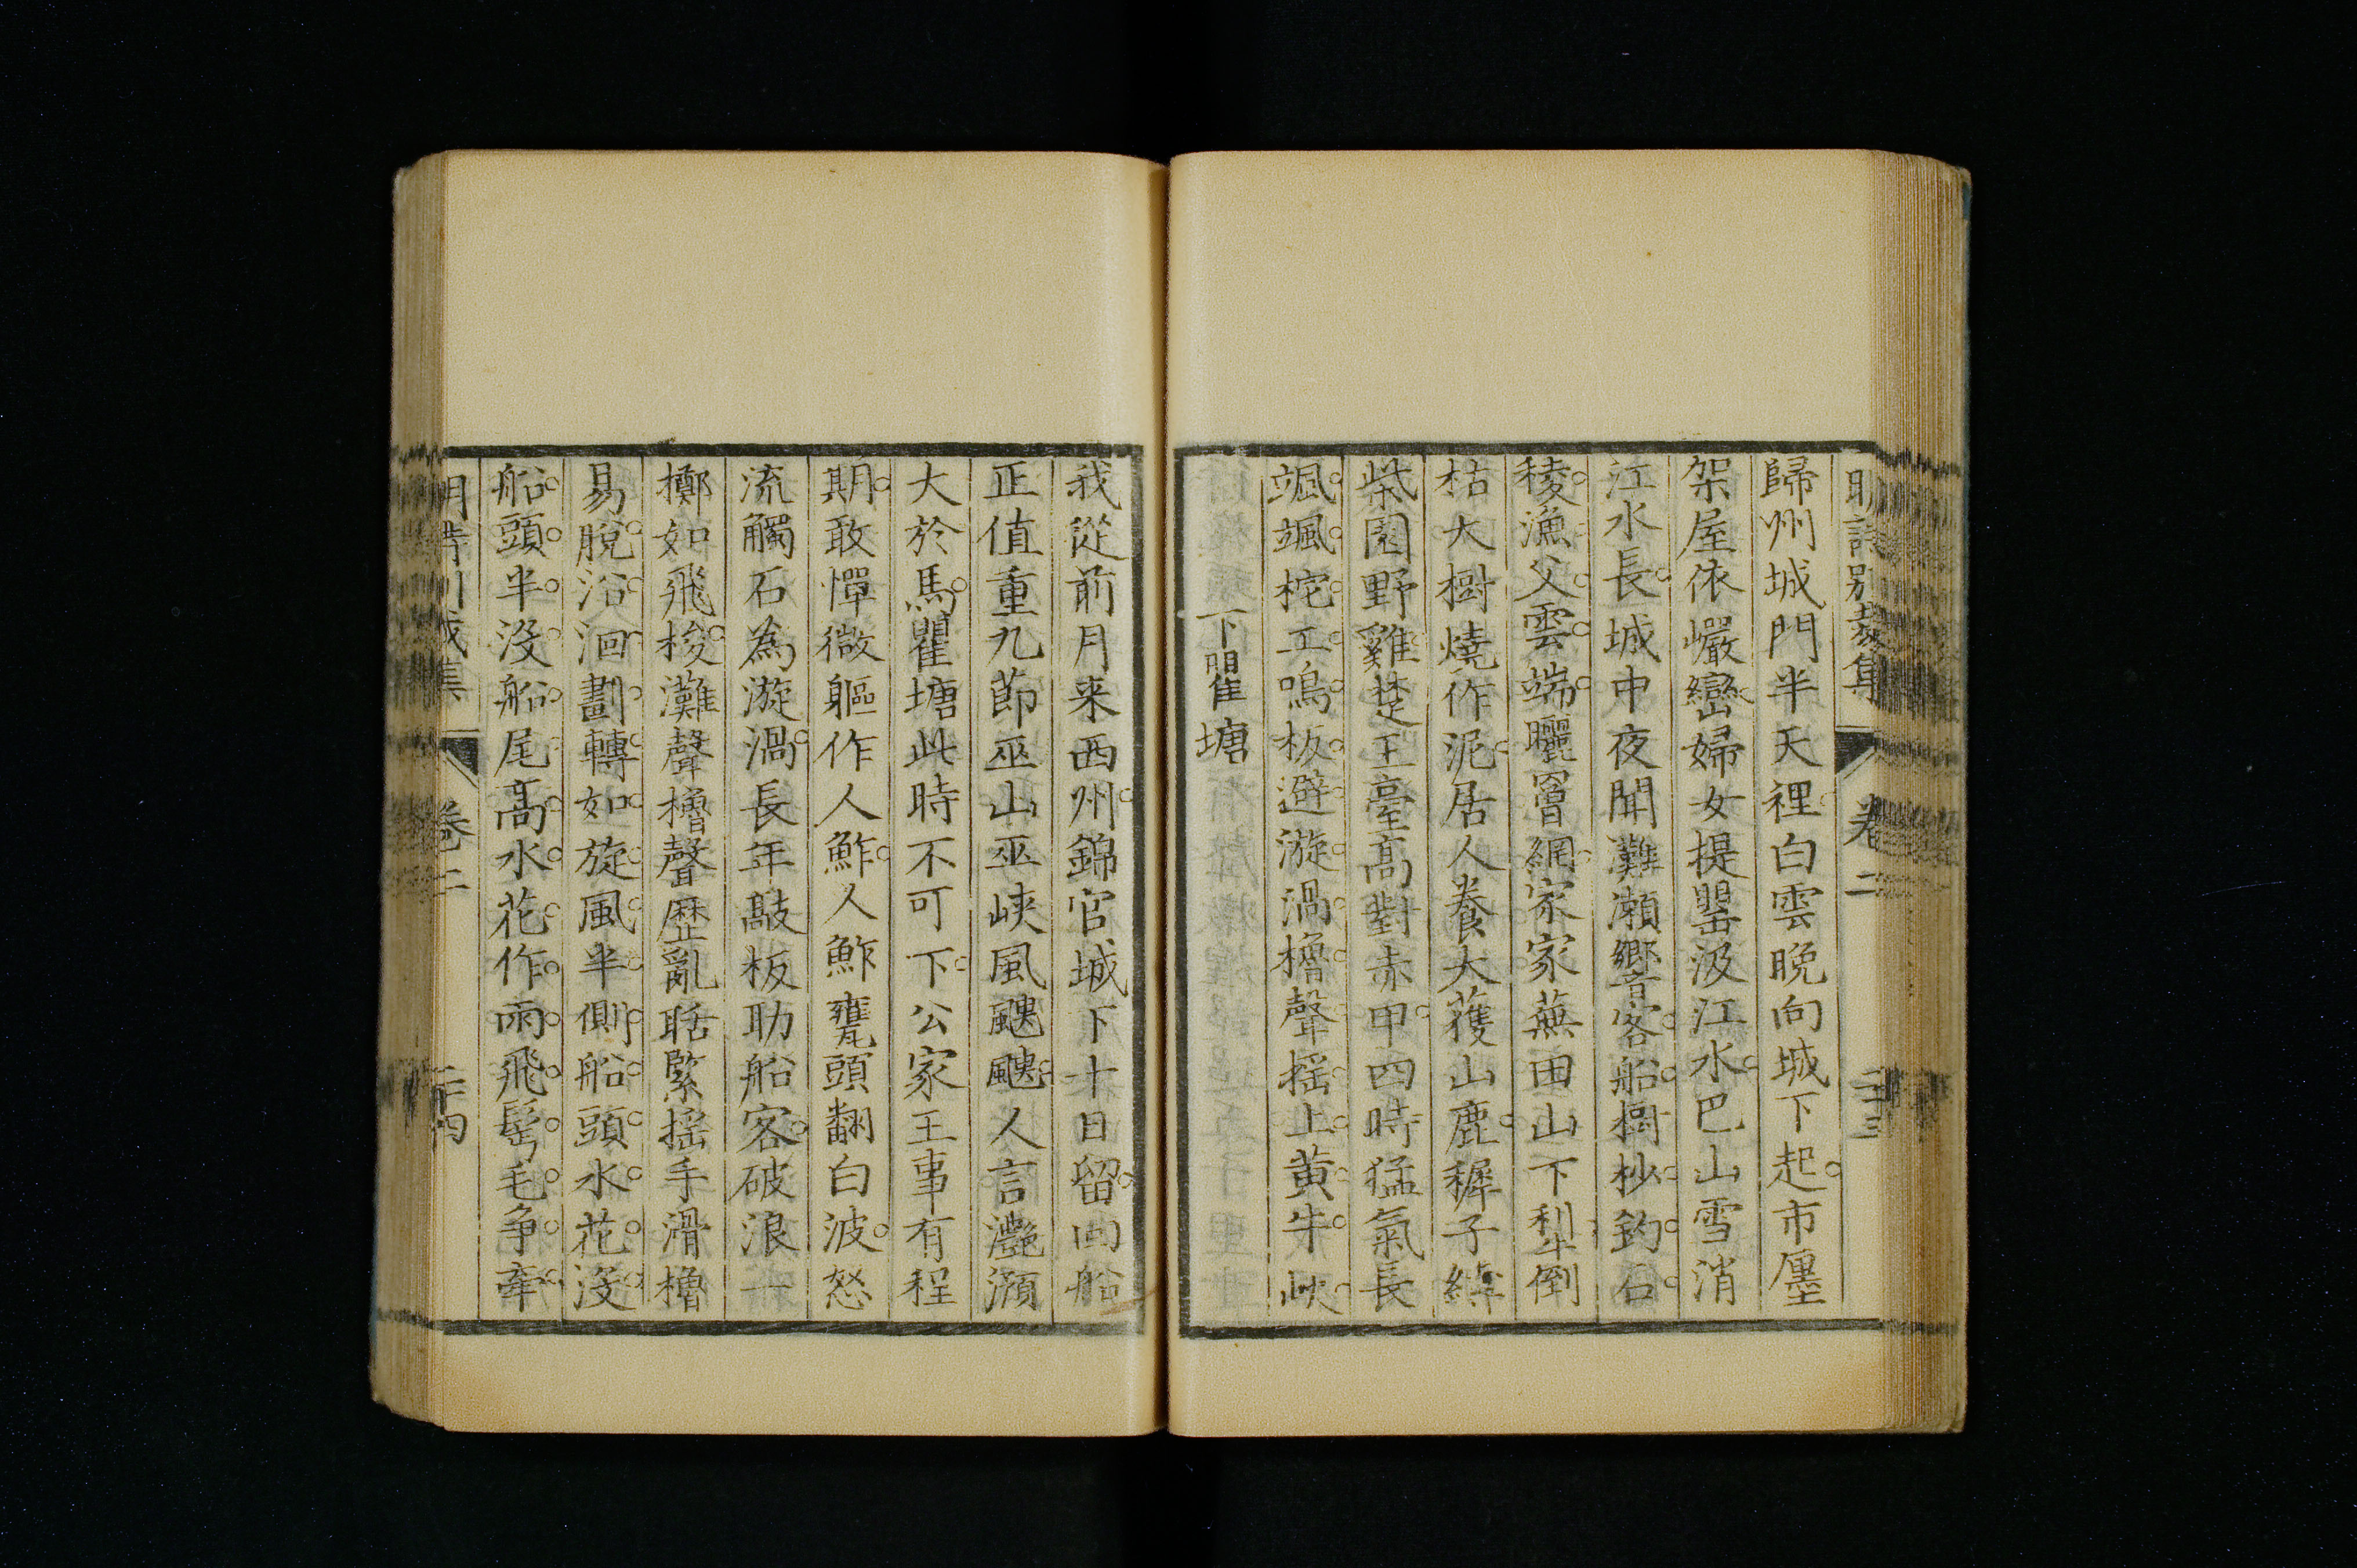 明詩別裁集 卷二 二十三
歸州城門半天裡白雲晚向城下起市廛
架屋依巖巒婦女提罌汲江水巴山雪消
江水長城中夜聞灘瀨響客船樹杪釣石
稜漁父雲端曬罾網家家蕪田山下犁倒
枯大樹燒作泥居人養犬獲山鹿穉子緣
柴園野雞楚王臺高對赤甲四時猛氣長
颯颯柁工鳴板避漩渦櫓聲搖上黃牛峽
下瞿塘
我從前月来西州錦官城下十日留回船
正值重九節巫山巫峽風颼颼人言灔澦
大於馬瞿塘此時不可下公家王事有程
期敢憚微軀作人鮓人鮓甕頭翻白波怒
流觸石為漩渦長年敲板助船客破浪一
擲如飛梭灘聲櫓聲歷亂聒緊搖手滑櫓
易脫沿洄劃轉如旋風半側船頭水花沒
船頭半沒船尾高水花作雨飛鬂毛爭牽
明詩別裁集 卷二 二十四